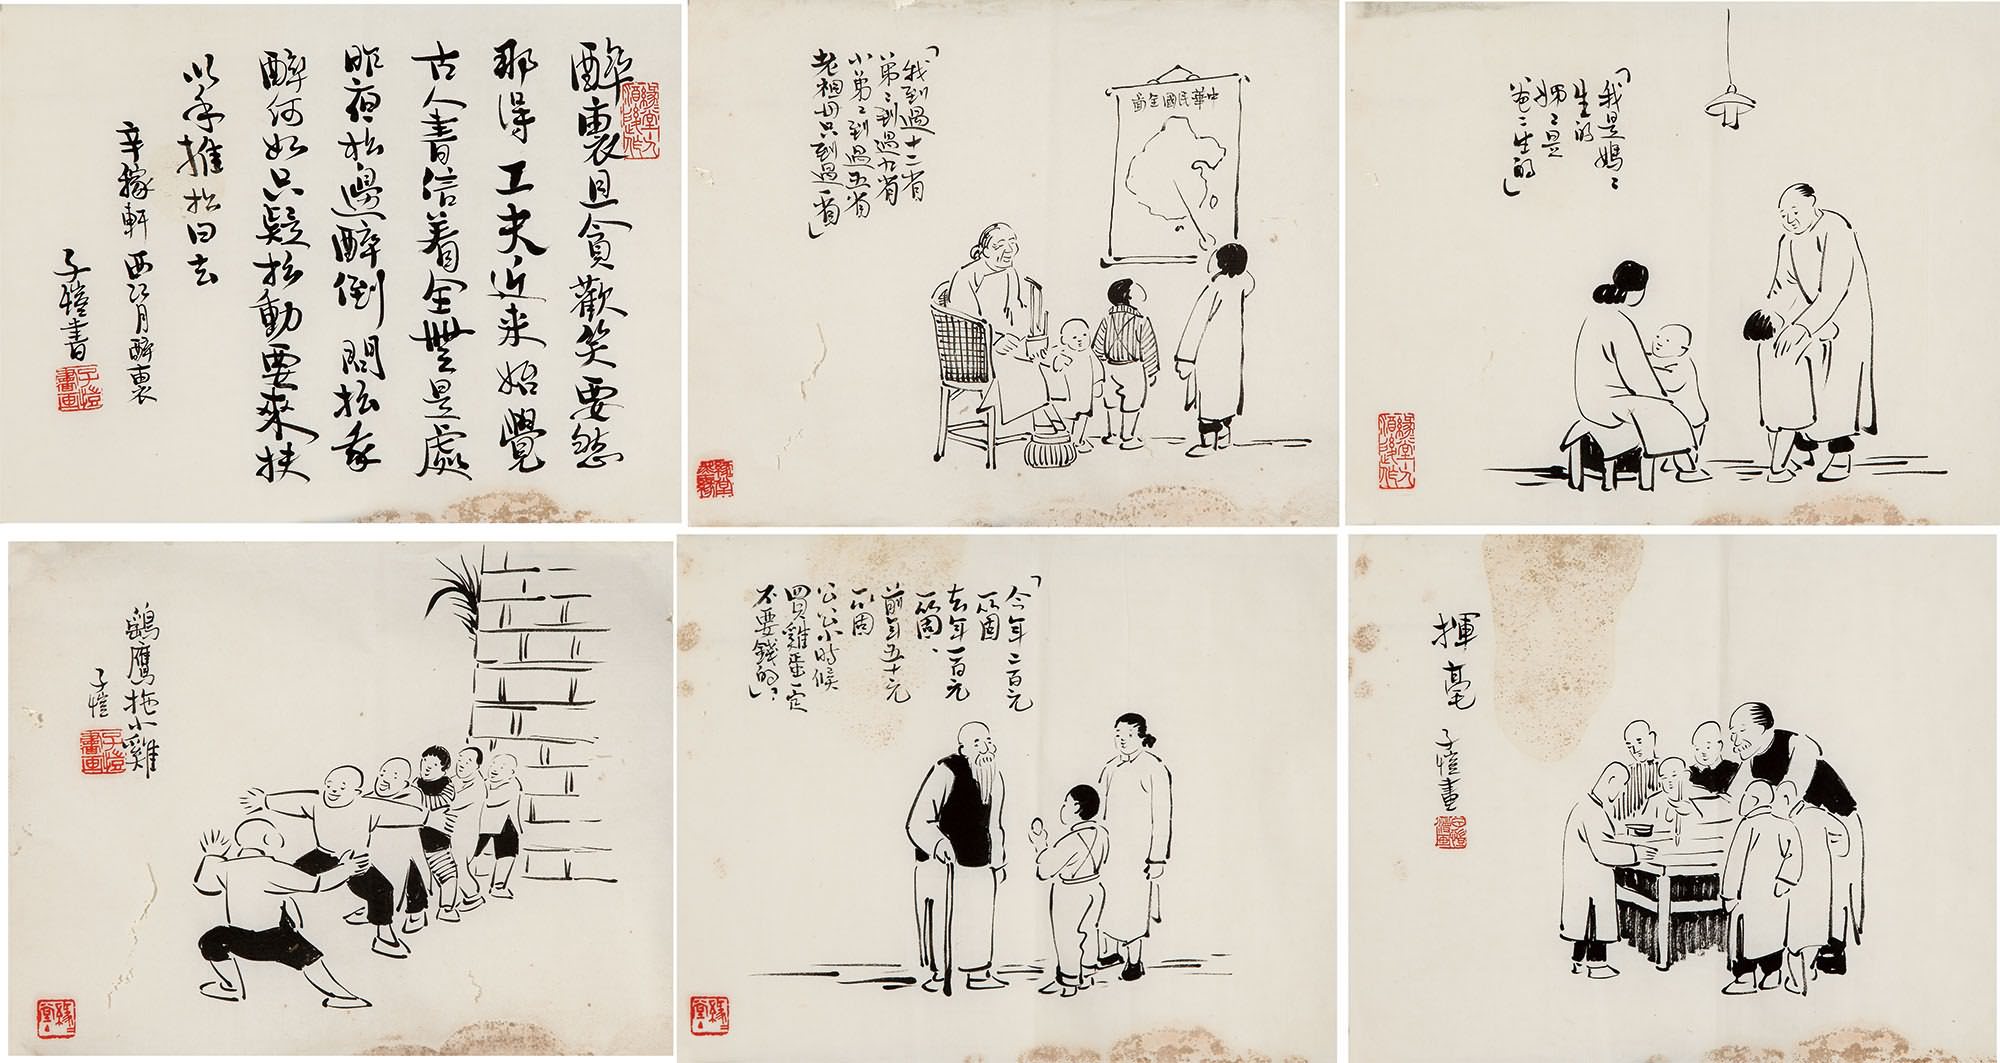 醉裏且貪歡笑要愁
那得工夫近来始覺
古人書信着全無是處
昨夜松邊醉倒問松我
醉何如只疑松動要來扶
以手推松曰去
辛稼軒西江月醉裏
子愷書
子愷書画
「我到過十二省
弟〻到過九省
小弟〻到過五省
老祖母只到過一省」
中華民國全啚
「我是媽〻
生的
姊〻是
爸〻生的」
鷂鷹拖小雞
子愷
子愷書画
緣〻堂
「今年二百元
一個
去年一百元
一個、
前年五十元
一個
公公小時候
買雞蛋一定
不要錢的？」
緣〻堂
揮毫
子愷畫